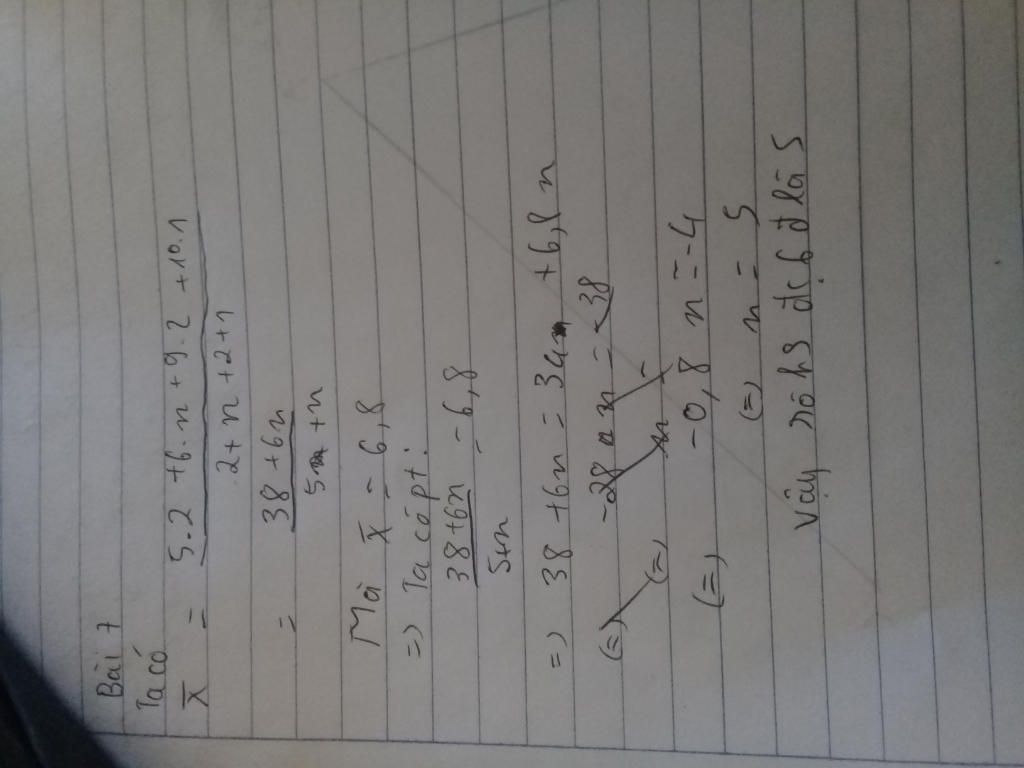 Bài 7
Ta có
X̄ = 5.2 + 6.n + 9.2 + 10.1
2 + n + 2 + 1
= 38 + 6n
5 + n
Mà X̄ = 6,8
=> Ta có pt:
38 + 6n = 6,8
5 + n
=> 38 + 6n = 34 + 6,8 n
(=) -0,8 n = -4
(=) n = 5
Vậy số hs đc 6 đ là 5